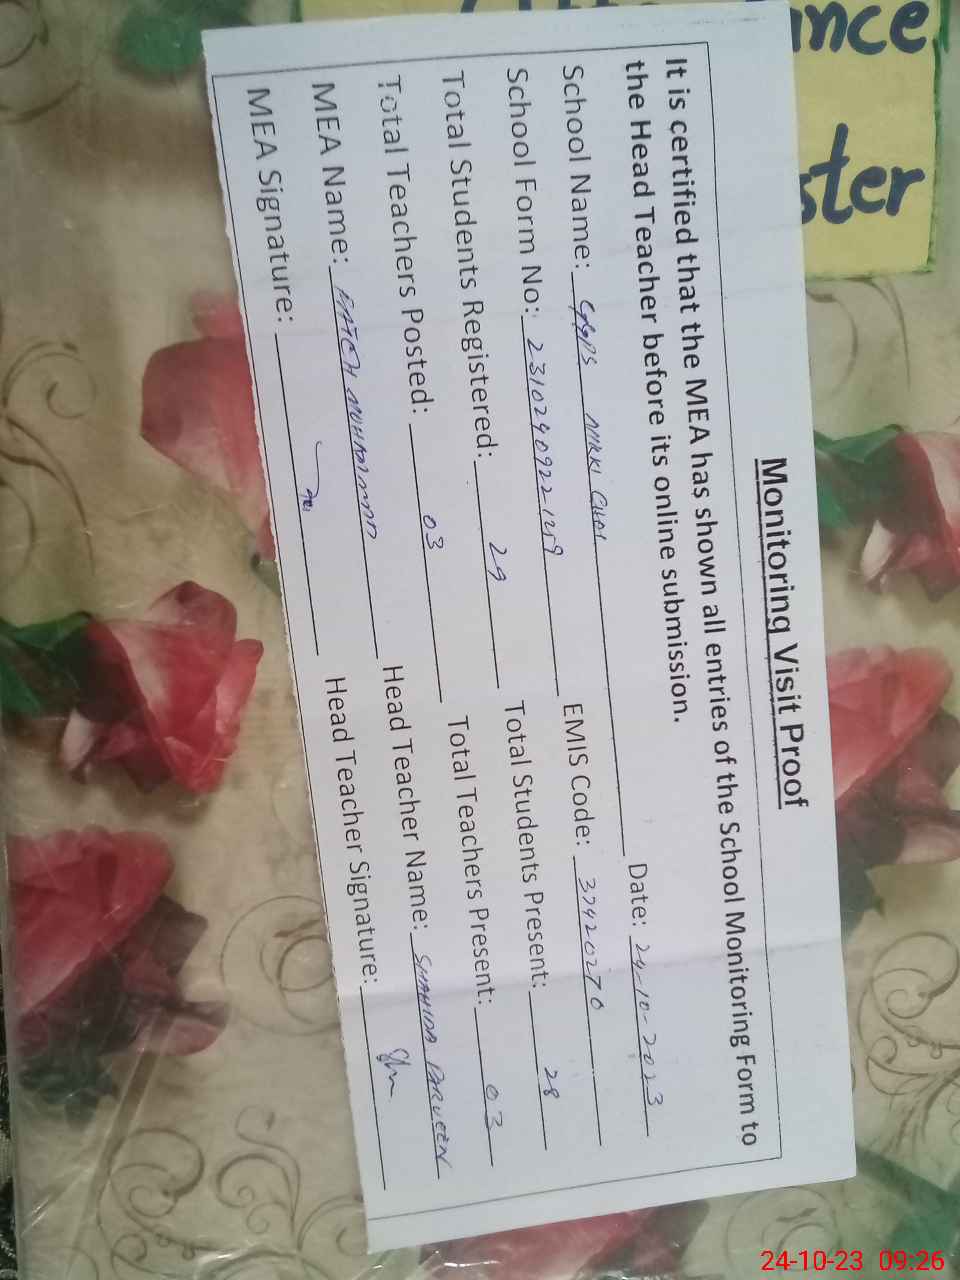 Monitoring Visit Proof
It is certified that the MEA has shown all entries of the School Monitoring Form to
the Head Teacher before its online submission.
School Name: GGPS NIKKI Date: 24-10-2023
School Form No: EMIS Code: 37420270
Total Students Registered: 29 Total Students Present: 28
Total Teachers Posted: 03 Total Teachers Present: 03
MEA Name: FATEH MOHAMMAD Head Teacher Name: SHAHIDA PARVEEN
MEA Signature: Head Teacher Signature:
nce
ster
24-10-23 09:26